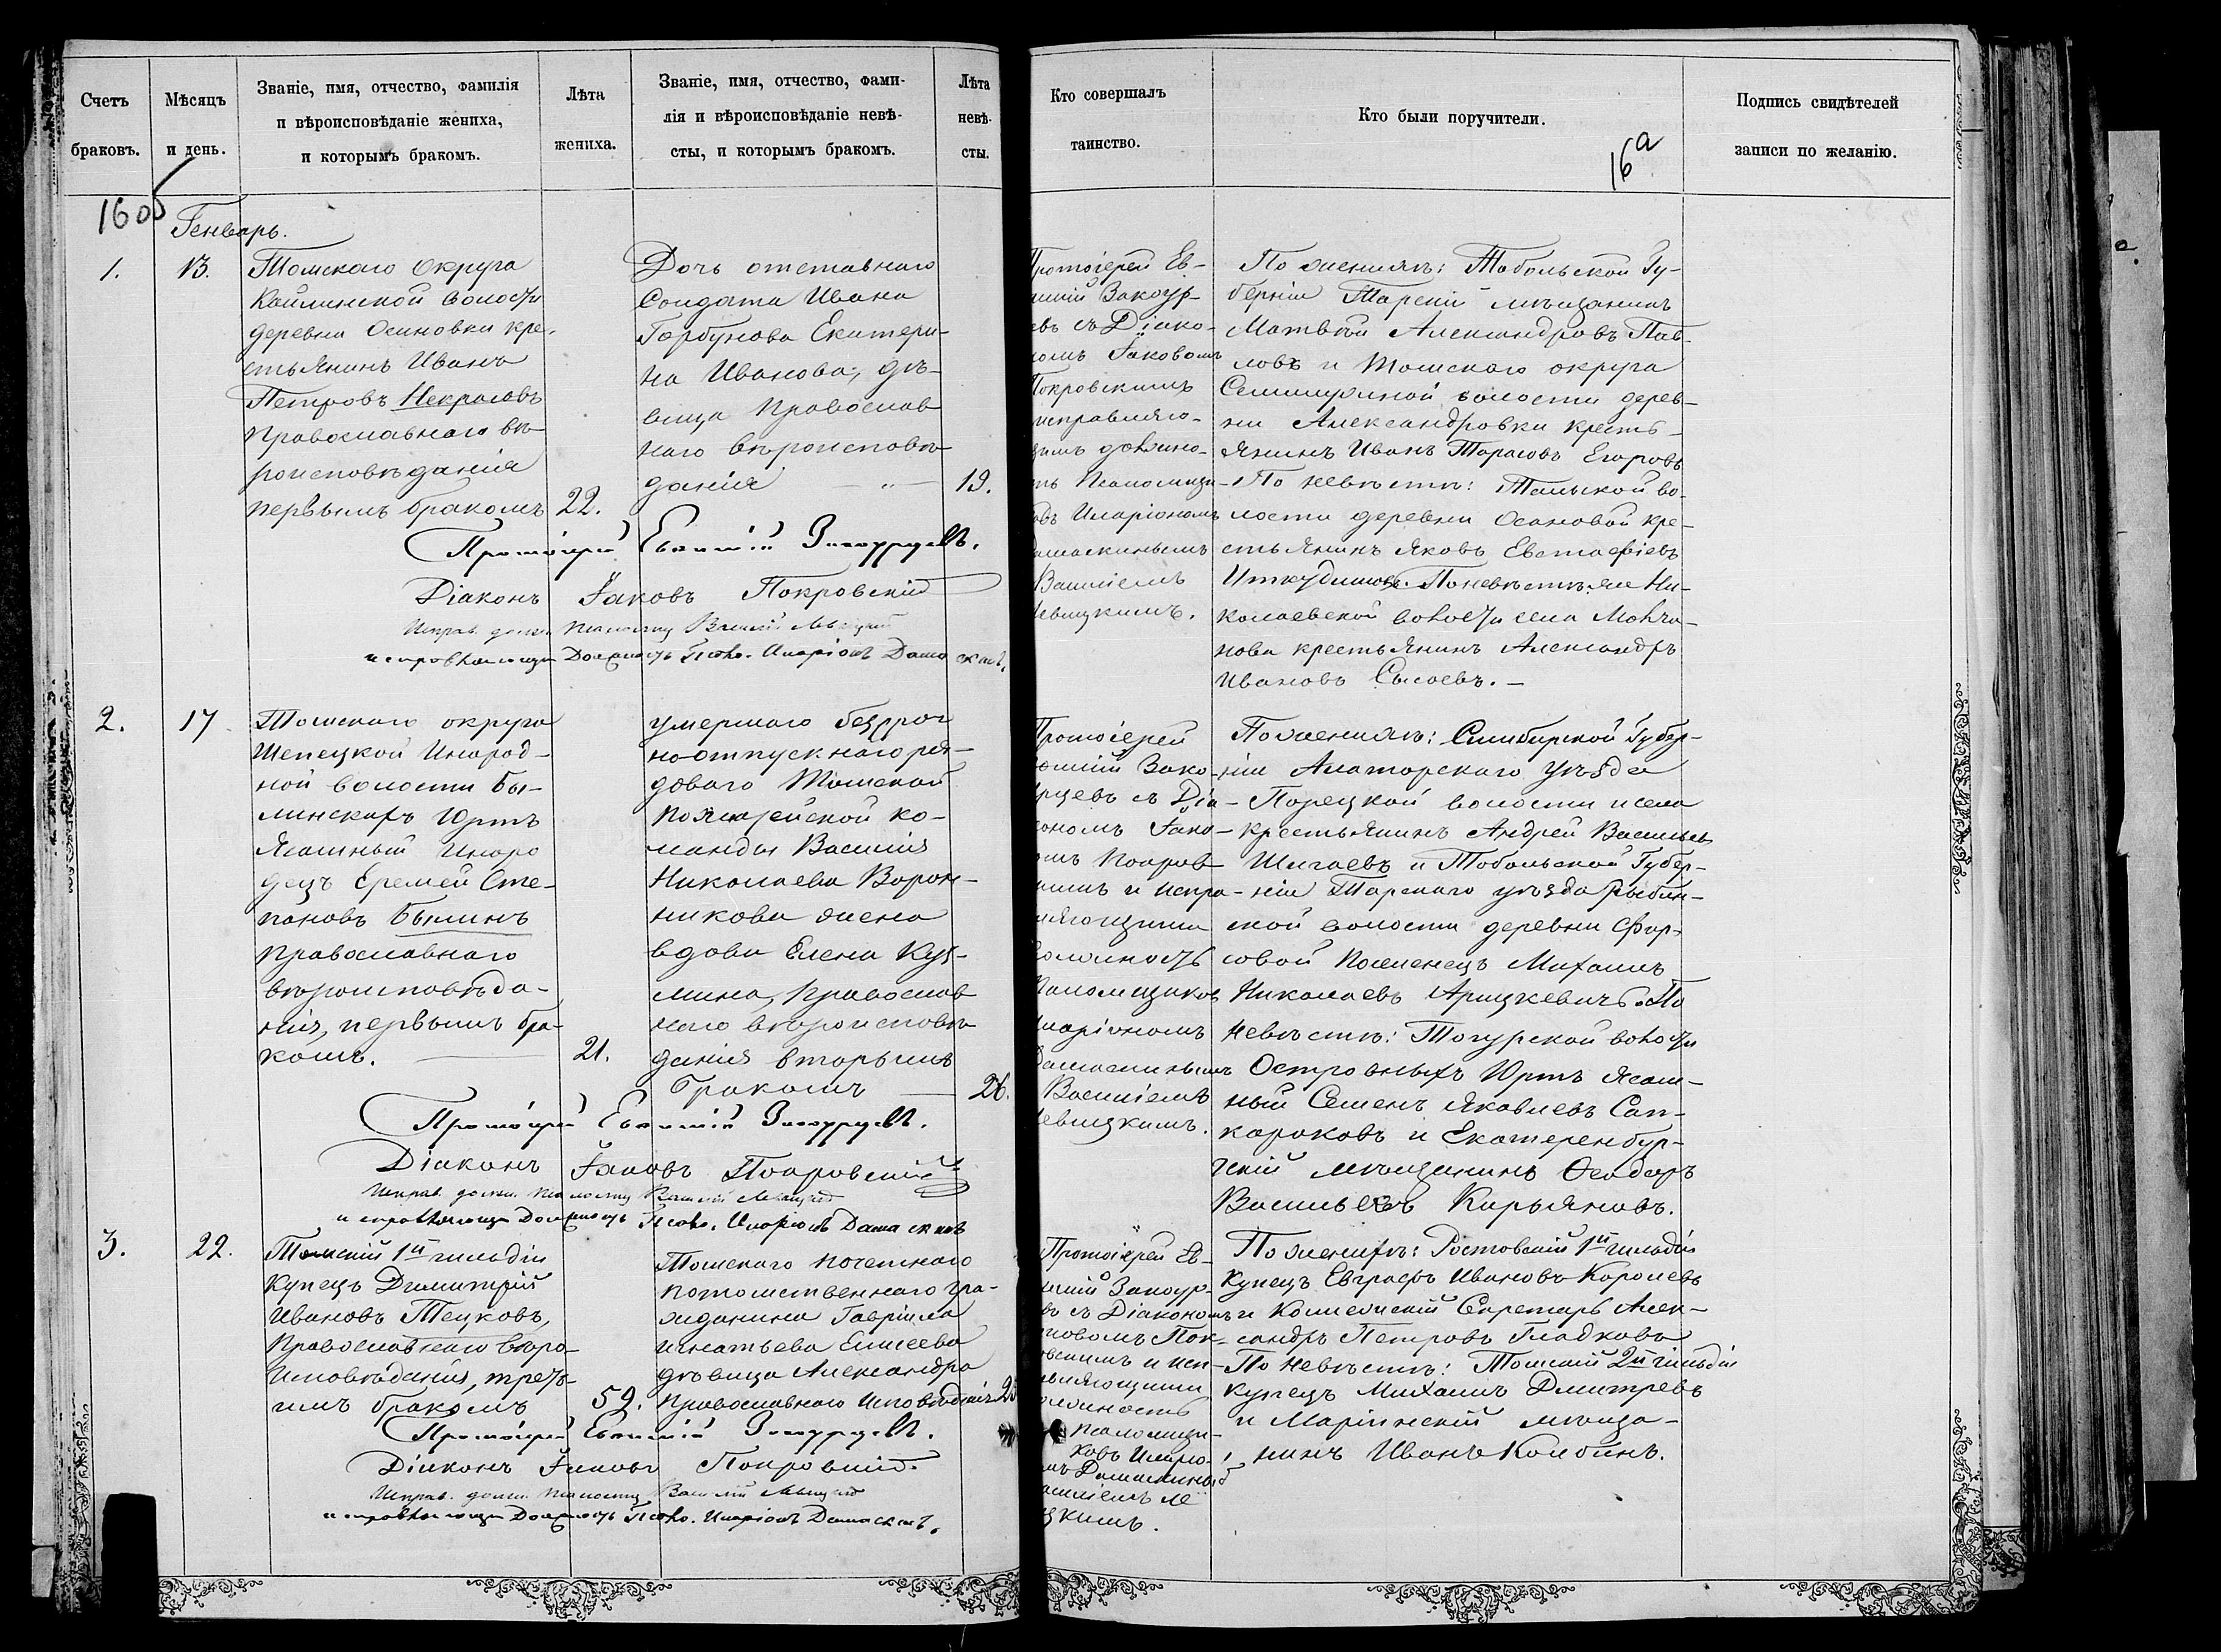 Счетъ
браковъ.
Мѣсяцъ
и день.
Званіе, имя, отчество, фамилія
и вѣроисповѣданіе жениха,
и которымъ бракомъ.
Лѣта
жениха.
Званіе, имя, отчество, фами-
лія и вѣроисповѣданіе невѣ-
сты, и которымъ бракомъ.
Лѣта
невѣ-
сты.
Кто совершалъ
таинство.
Кто были поручители.
Подпись свидѣтелей
записи по желанію.
16а
160
Генварь.
1.
13.
Томскаго Округа
Кайлинской волости
деревни Осиновки кре-
стьянинъ Иванъ
Петровъ Некрасовъ
православнаго вѣ-
роисповѣданія
первымъ бракомъ
22.
Дочь отставнаго
Солдата Ивана
Горбунова Екатери-
на Иванова, дѣ-
вица Православ
наго вѣроисповѣ-
данія
19.
Протоіерей Ев-
съ Діако-
Іаковомъ
Покровскимъ
исправляю-
Псаломщи-
Иларіономъ
Василіемъ
По женихѣ: Тобольской Гу-
берніи Тарскій мѣщанинъ
Матвѣй Александровъ Пав-
ловъ и Томскаго округа
Семилужной волости дерев-
ни Александровки кресть-
янинъ Иванъ Тарасовъ Егоровъ
По невѣстѣ: Тальской во-
лости деревни Осановой кре-
стьянинъ Яковъ Евстафіевъ
По невѣстѣ же Ни-
колаевской волости села Молча-
нова крестьянинъ Александръ
Ивановъ Сысоевъ.
Протоіерей Евѳимій Закоурцевъ.
Діаконъ Іаковъ Покровскій
Исправ. должн. Псаломщ. Василій Левицкій
исправляющій Должность Псало. Иларіонъ Дамаскинъ.
2.
17
Томскаго округа
Шепецкой Инород-
ной волости Бы-
линскихъ Юртъ
Ясашный Иноро
децъ Еремей Сте-
пановъ Былинъ
православнаго
вѣроисповѣда-
нія, первымъ бра-
комъ.
21.
умершаго безсроч
но отпускнаго ря-
доваго Томской
полицейской ко-
манды Василія
Николаева Ворон-
никова жена
вдова Елена Куз-
мина, Православ
наго вѣроисповѣ
данія вторымъ
бракомъ
26.
Протоіерей
Зако-
съ Діа-
Іако-
Покров
и испра-
Василіемъ
По женихѣ: Симбирской Губер-
ніи Алаторскаго уѣзда
Порецкой волости и села
крестьянинъ Андрей Васильевъ
Шигаевъ и Тобольской Губер-
ніи Тарскаго уѣзда Рыбин-
ской волости деревни Фир-
совой Поселенецъ Михаилъ
Николаевъ Арицкевичъ. По
невѣстѣ: Тогурской волости
Островныхъ Юртъ Ясаш-
ный Семенъ Яковлевъ Сап-
кароковъ и Екатеренбур-
гскій мѣщанинъ Ѳеодоръ
Васильевъ Карьяновъ.
Протоіерей Евѳимій Закоурцевъ.
Діаконъ Іаковъ Покровскій
Исправ. должн. Псаломщ. Василій Левицкій
исправляющій Должность Псало. Иларіонъ Дамаскинъ
3.
22.
Томскій 1й гильдіи
Купецъ Димитрій
Ивановъ Тецковъ,
Православнаго вѣро-
исповѣданія, треть-
имъ бракомъ
59.
Томскаго почетнаго
потомственнаго гра-
жданина Гавріила
Игнатьева Елисеева
дѣвица Александра
Православнаго Исповѣданія
Протоіерей Ев-
съ Діакономъ
и исп-
Псаломщи-
По женихѣ: Ростовскій 1й гильдіи
Купецъ Евграфъ Ивановъ Королевъ
и Коллежскій Секретарь Алек-
сандръ Петровъ Гладковъ
По невѣстѣ: Томскій 2й гильдіи
купецъ Михаилъ Дмитревъ
и Маріинскій мѣща-
нинъ Иванъ Колбинъ.
Протоіерей Евѳимій Закоурцевъ.
Діаконъ Іаковъ Покровскій
Исправ. должн. Псаломщ. Василій Левицкій
исправляющій Должность Псало. Иларіонъ Дамаскинъ.